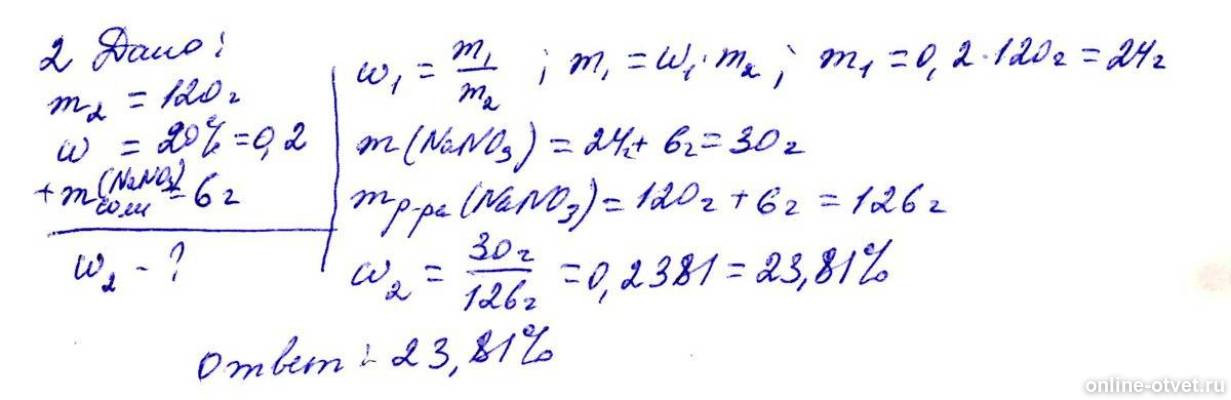 2 Дано:
m₂ = 120г
ω = 20% = 0,2
+ m соли (NaNO₃) = 6г
ω₂ - ?
ω₁ = m₁/m₂ ; m₁ = ω₁·m₂ ; m₁ = 0,2·120г = 24г
m(NaNO₃) = 24г + 6г = 30г
m р-ра (NaNO₃) = 120г + 6г = 126г
ω₂ = 30г/126г = 0,2381 = 23,81%
Ответ: 23,81%
online-otvet.ru